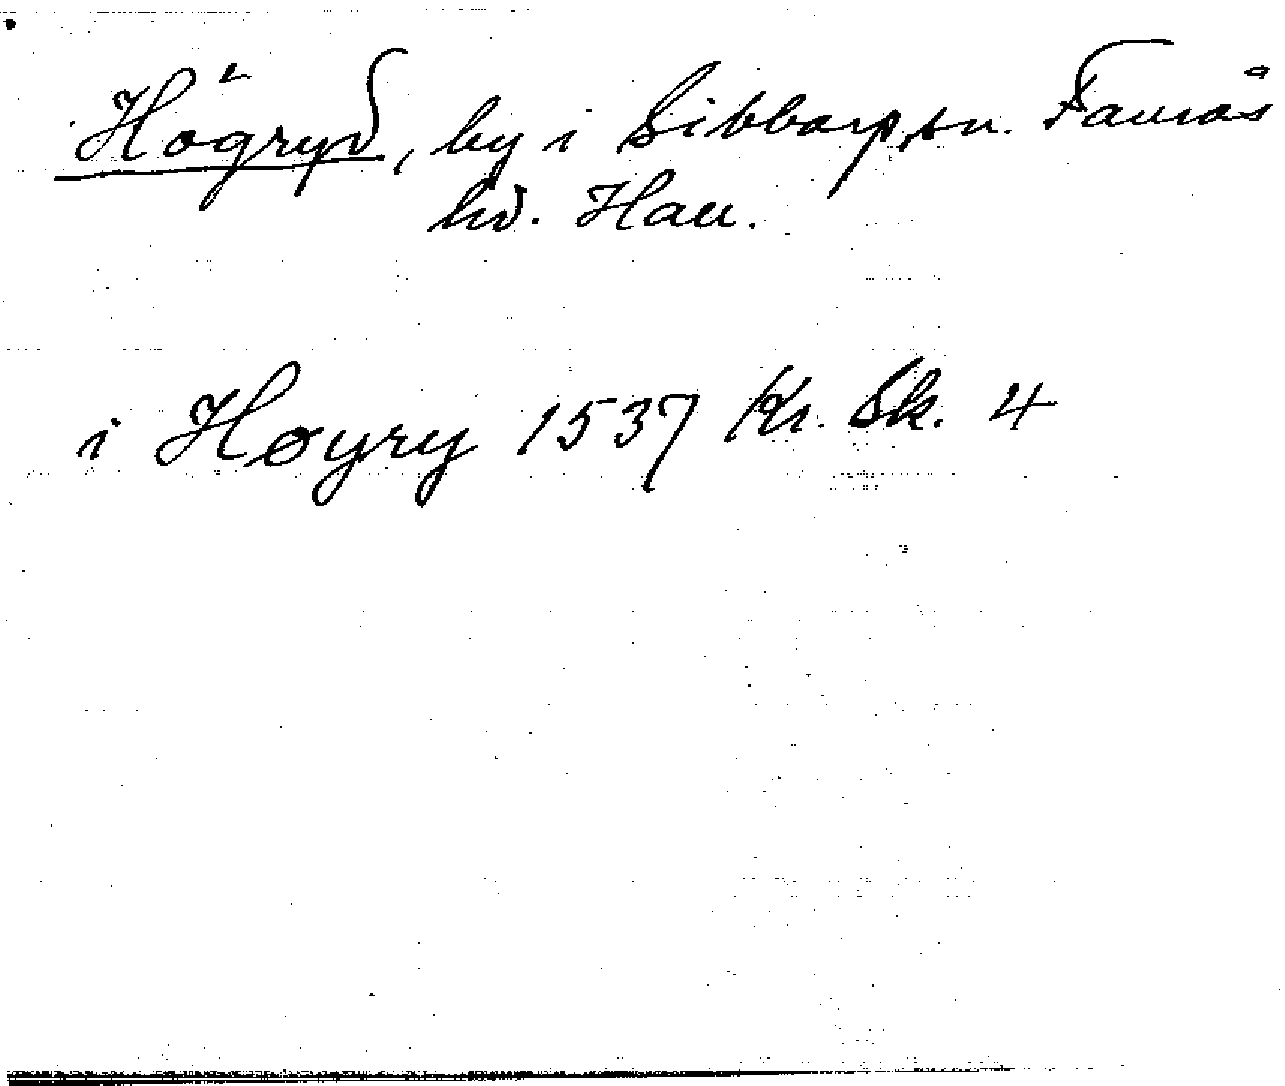 Högryd, by i Sibbarp sn. Faurås
hd. Hall.
i Høyry 1537 Kr. Sk. 4